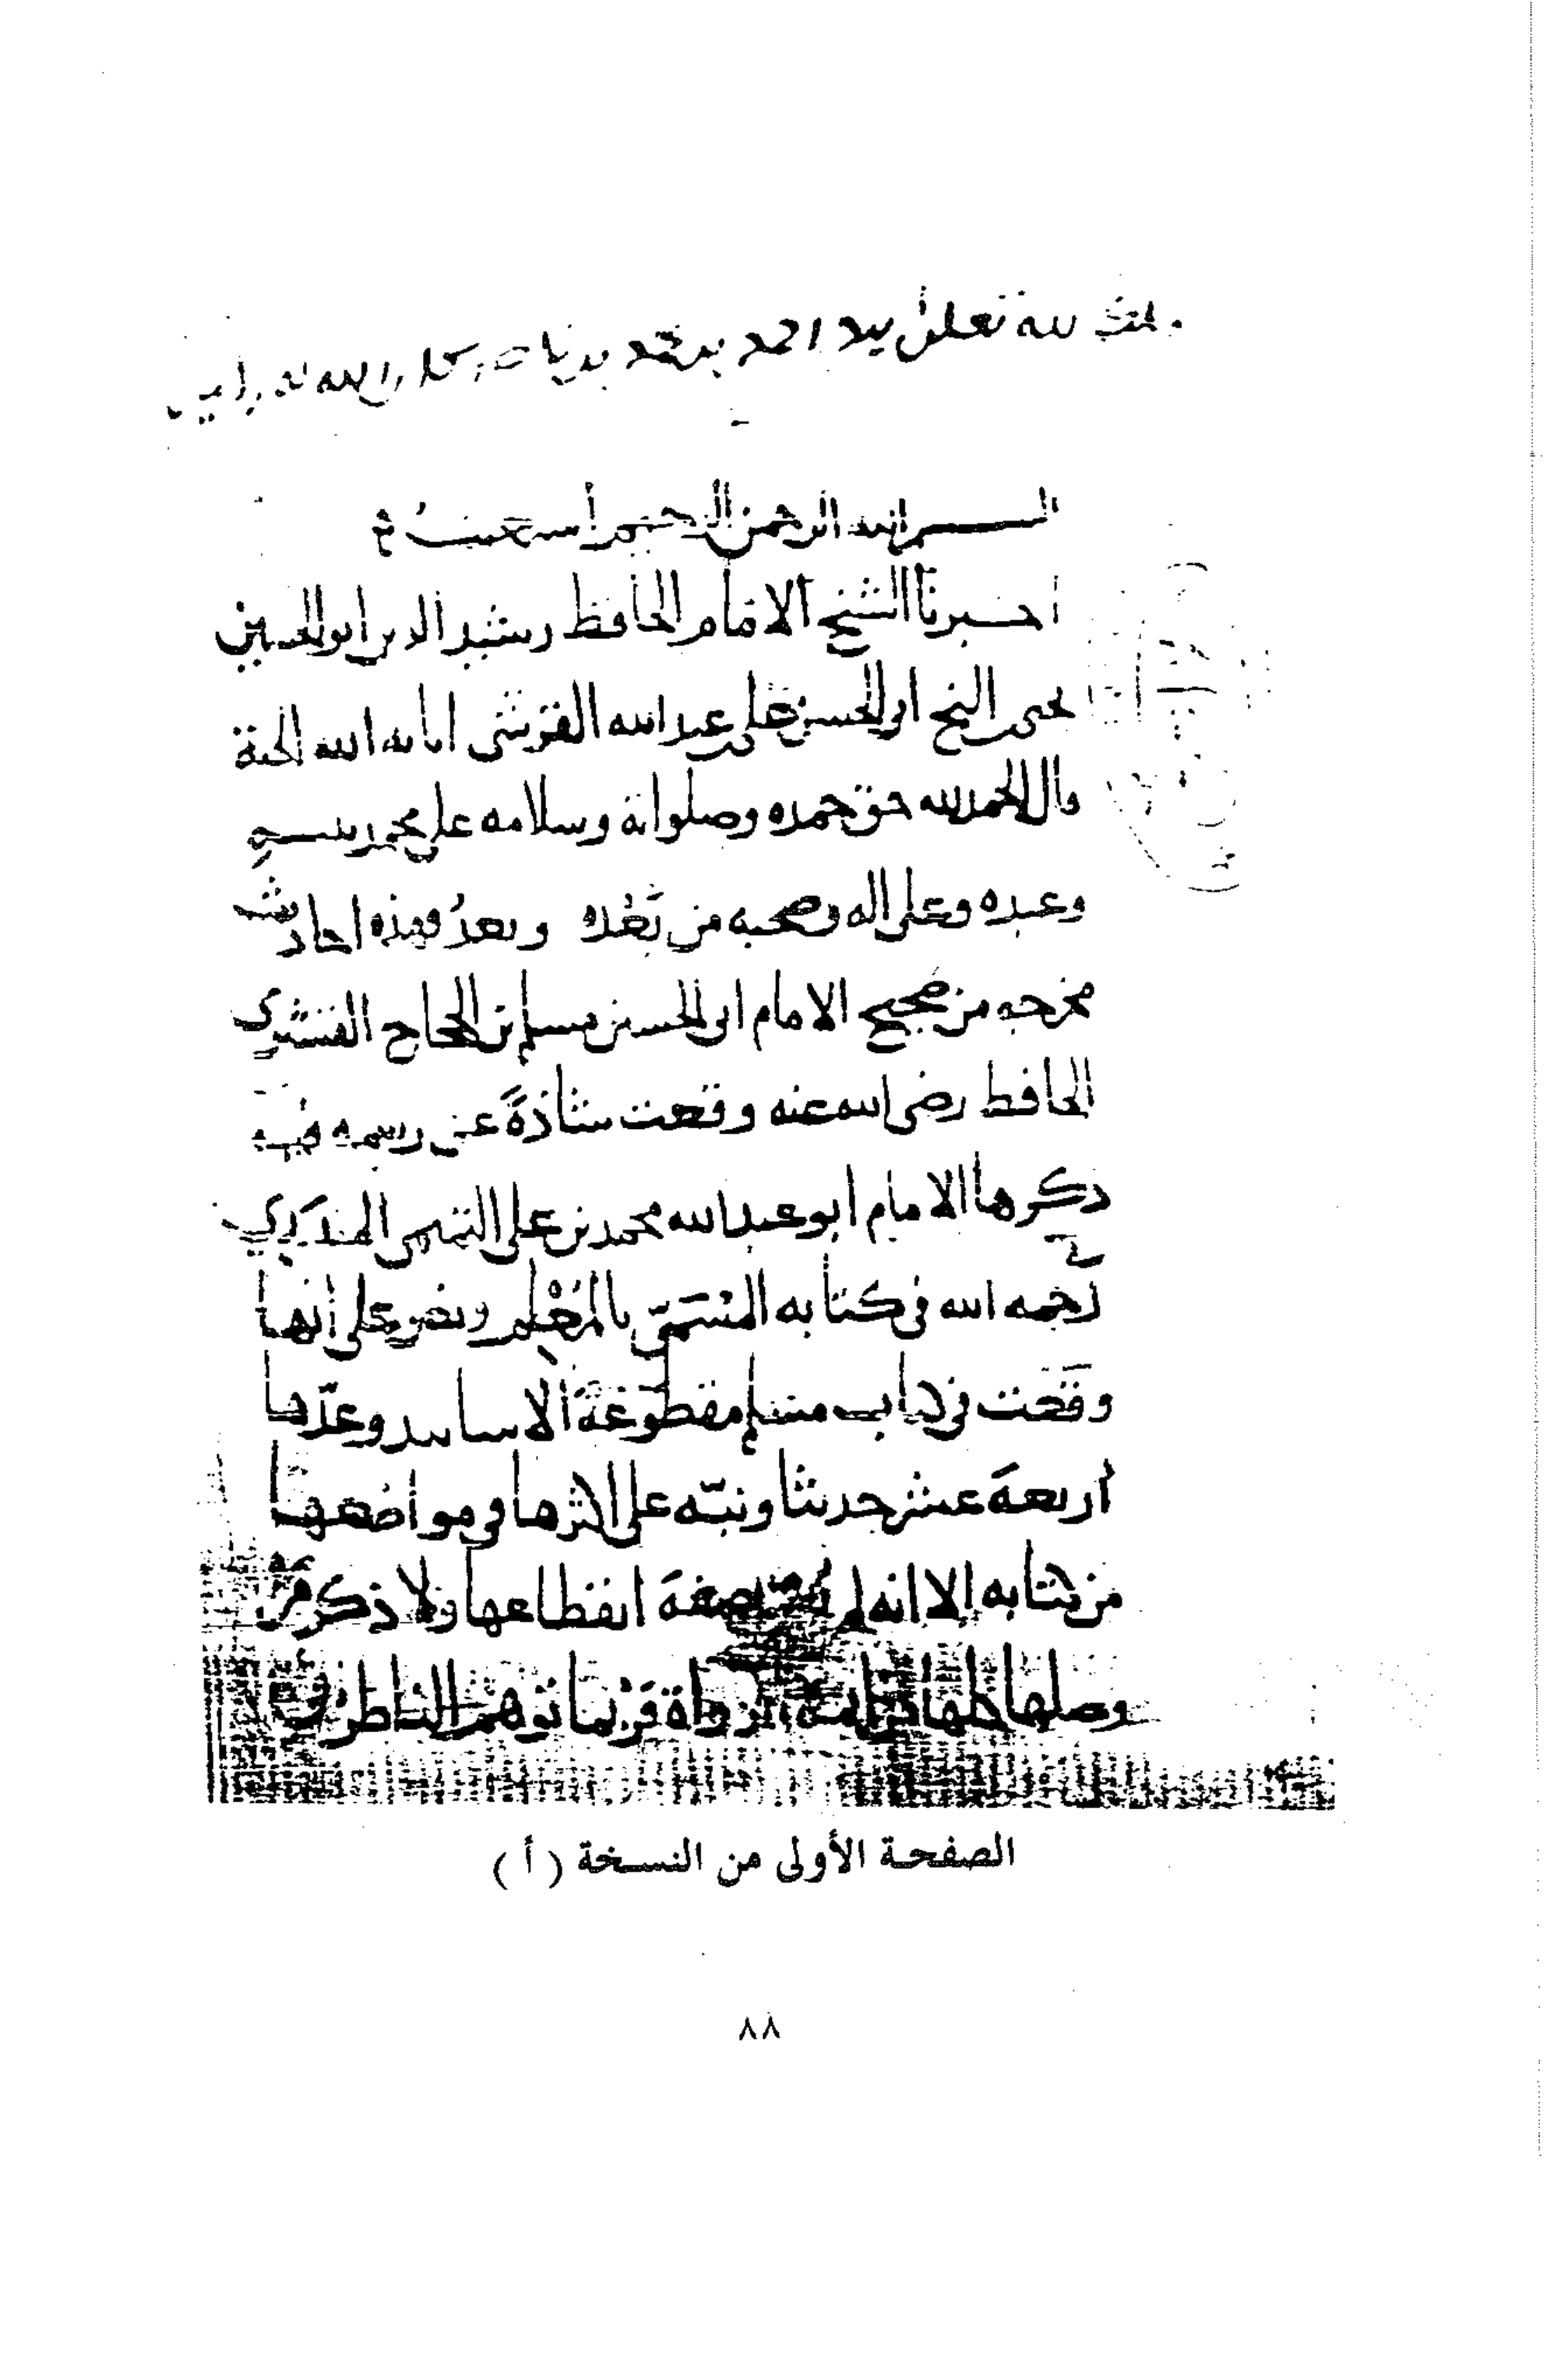 لله تعالى بيد احمد بن محمد
بسم الله الرحمن الرحيم أستعين
اخبرنا الشيخ الامام الحافظ رشيد الدين ابو الحسين
يحيى بن الشيخ ابى الحسن على بن عبد الله القرشى اثابه الله الجنة
قال الحمد لله حق حمده وصلواته وسلامه على محمد نبيه
وعبده وعلى اله وصحبه من بعده وبعدُ فهذه احاديث
مخرجه من صحيح الامام ابى الحسين مسلم بن الحجاج القشيري
الحافظ رضى الله عنه وقعت شاذةً عن رسمه فيه
ذكرها الامام ابو عبد الله محمد بن على التميمى المازري
رحمه الله فى كتابه المسمّى بالمُعْلم ونص على أنها
وقعت فى كتاب مسلم مقطوعة الاسانيد وعدّها
أربعة عشر حديثا ونبّه على اكثرها فى مواضعها
من كتابه إلا انه لم صفة انقطاعها ولا ذكر من
وصلها كلها من الرواة فربما توهم الناظر فى
الصفحة الأولى من النسخة ( أ )
٨٨